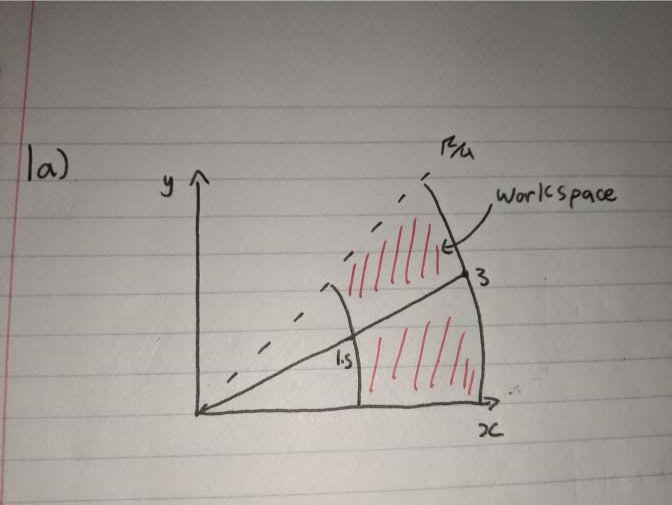 1a)
π/4
y
workspace
3
1.5
x